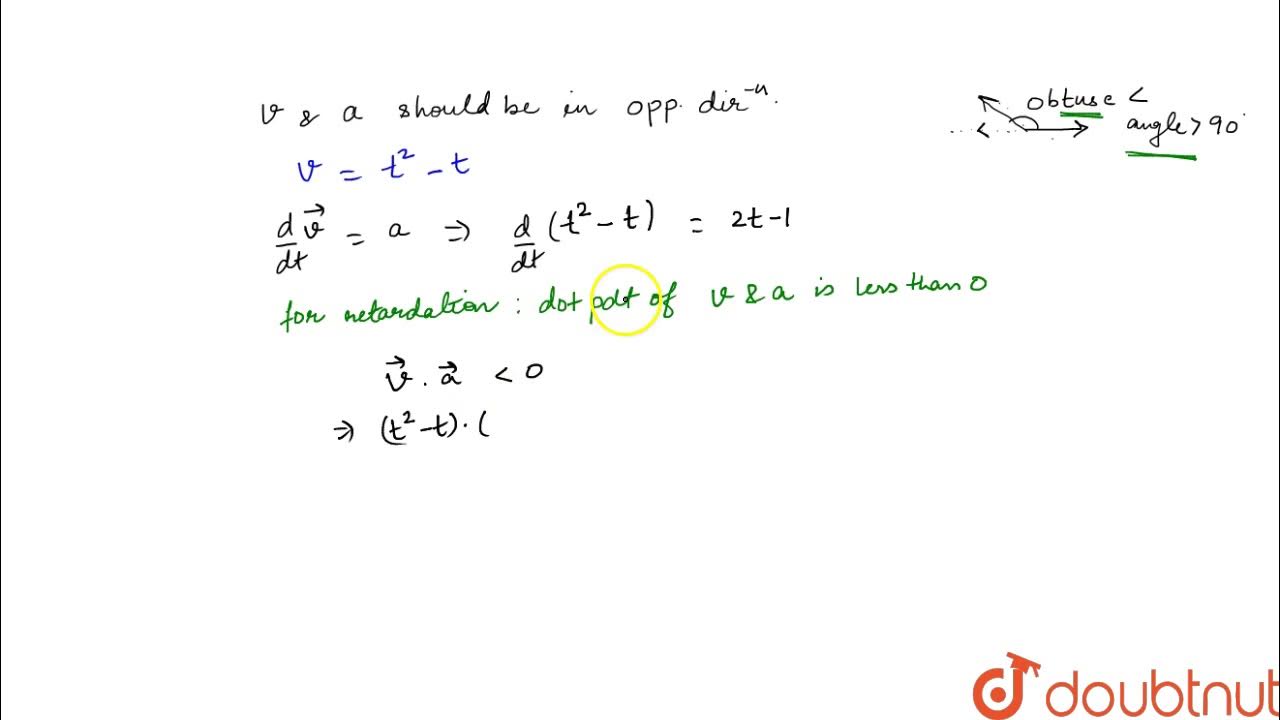 v & a should be in opp. dir⁻ⁿ.
obtuse <
angle > 90°
v = t² - t
d/dt v⃗ = a ⇒ d/dt (t² - t) = 2t - 1
for retardation : dot pdt of v & a is less than 0
v⃗ . a⃗ < 0
⇒ (t² - t) . (
doubtnut